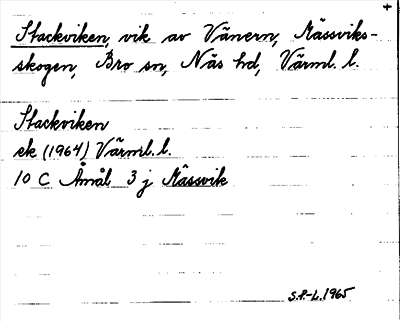 Stackviken, vik av Vänern, Mässviks-
skogen, Bro sn, Näs hd, Värml. l.
Stackviken
ek (1964) Värml. l.
10 C Åmål 3 j Mässvik
S.P.-L. 1965